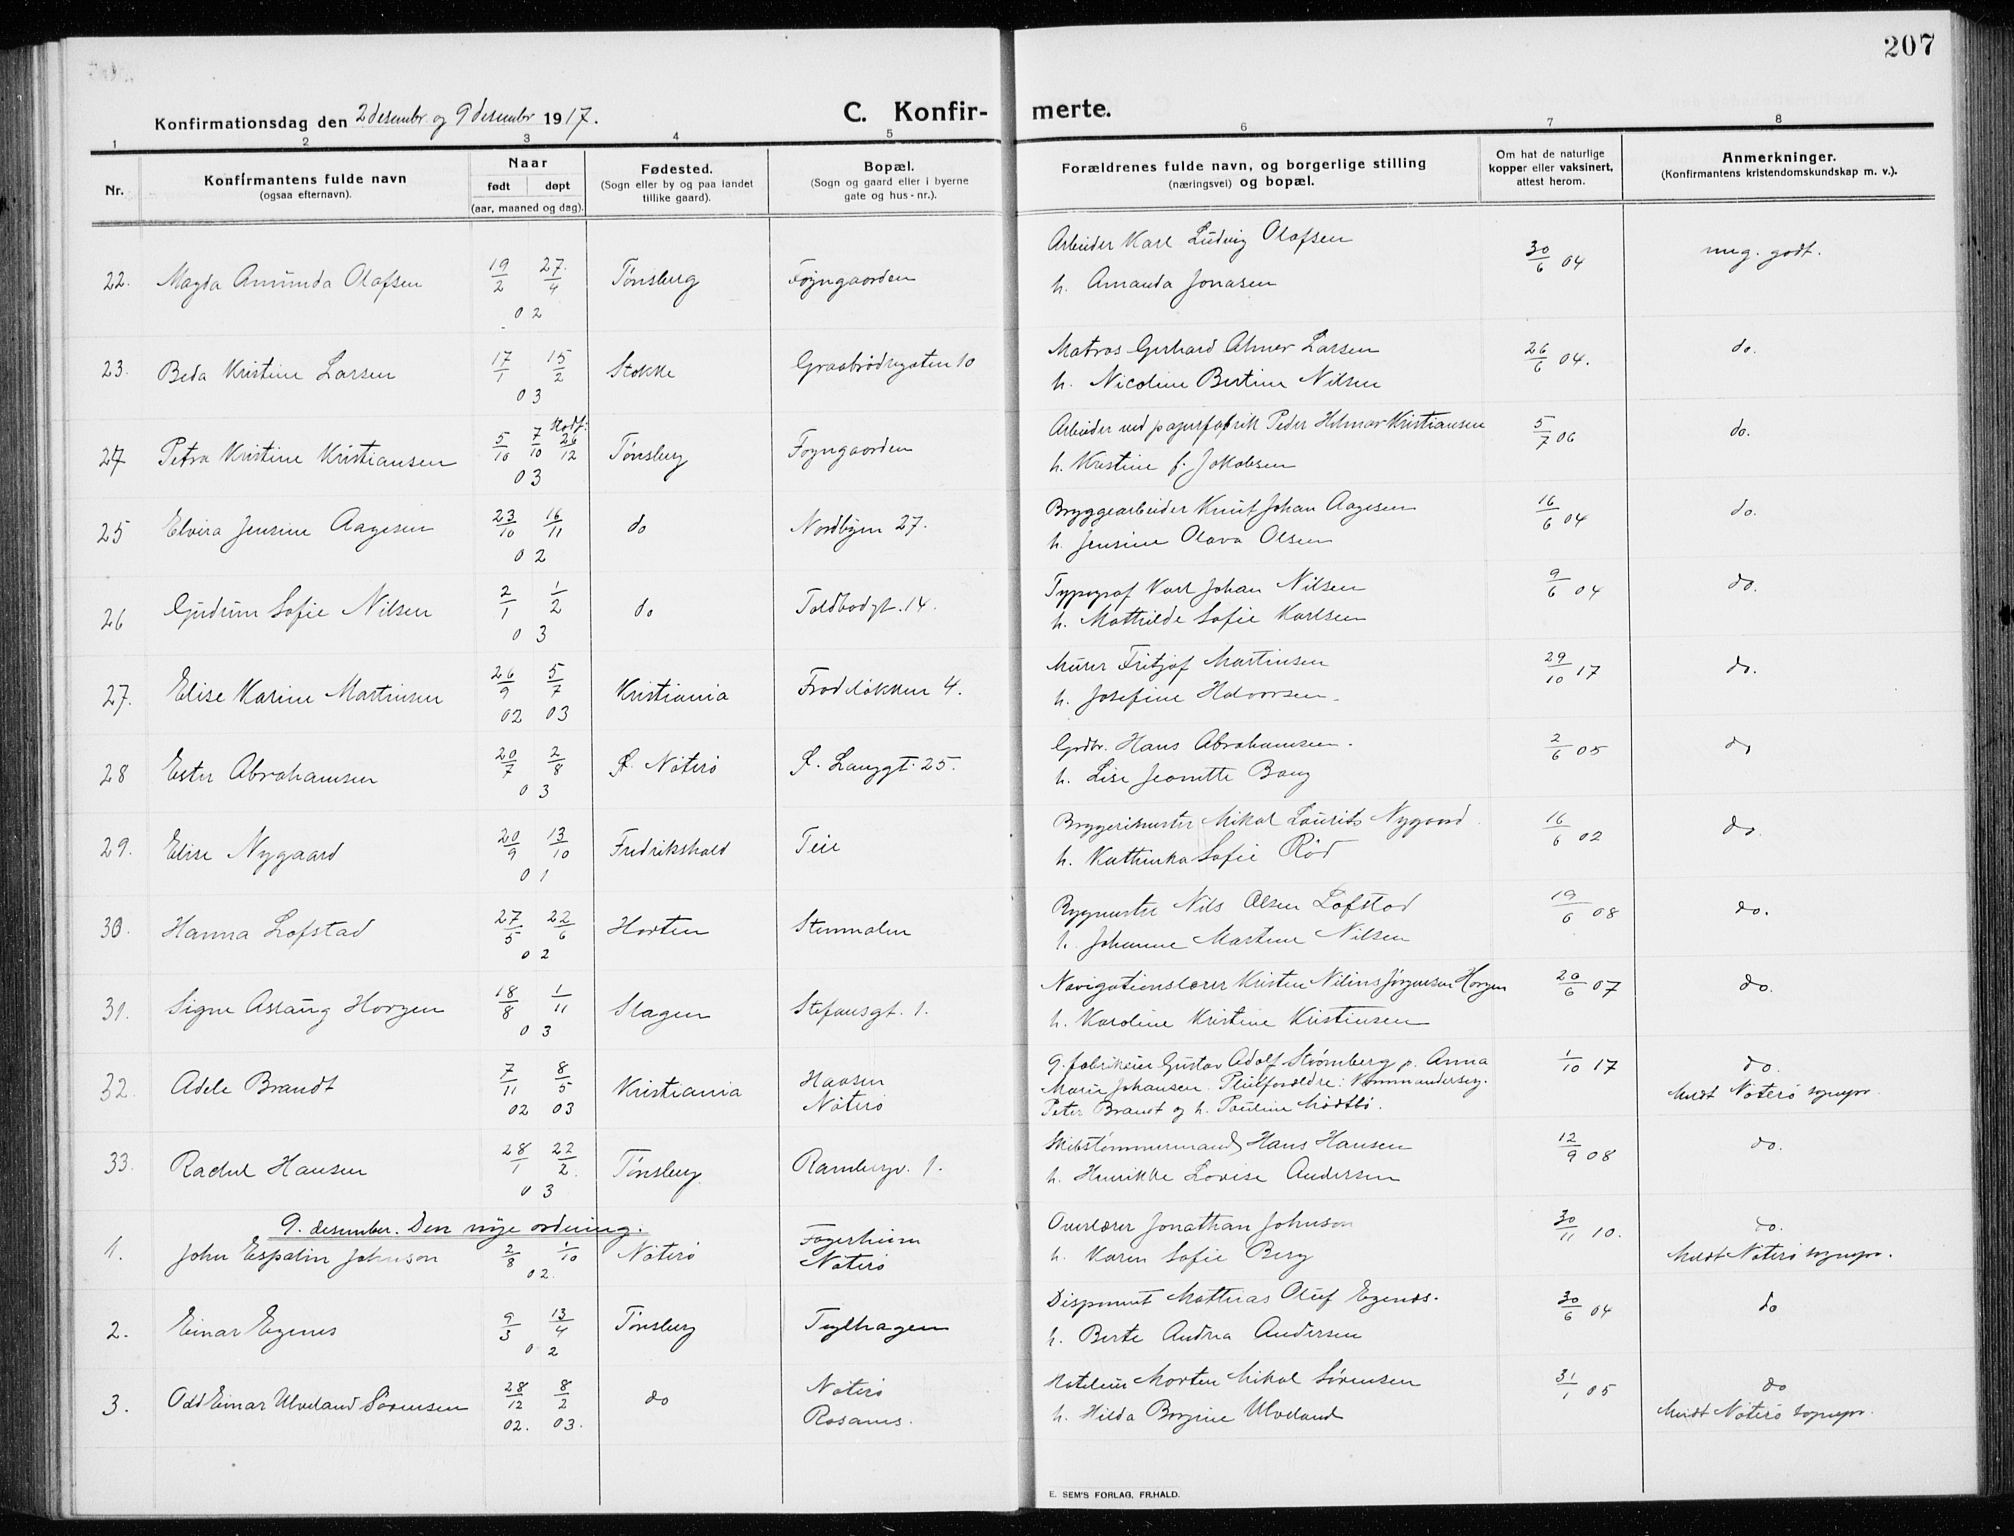 207
Konfirmationsdag den 2 desembr og 9 desembr 1917.
C. Konfir- merte.
1 2 3 4 5 6 7 8
Nr.
Konfirmantens fulde navn
(ogsaa efternavn).
Naar
født døpt
(aar, maaned og dag).
Fødested.
(Sogn eller by og paa landet
tillike gaard).
Bopæl.
(Sogn og gaard eller i byerne
gate og hus-nr.).
Forældrenes fulde navn, og borgerlige stilling
(næringsvei) og bopæl.
Om hat de naturlige
kopper eller vaksinert,
attest herom.
Anmerkninger.
(Konfirmantens kristendomskundskap m. v.).
22. Magda Amunda Olafsen 19/2 27/4 02 Tønsberg Føyngaarden
Arbeider Karl Ludvig Olafsen
h. Amanda Jonasen 30/6 04 meg. godt.
23. Beda Kristine Larsen 17/1 15/2 03 Stokke Graabrødregaten 10
Matros Gerhard Almer Larsen
h. Nicoline Bertine Nilsen 26/6 04. do.
24 Petra Kristine Kristiansen 5/10 7/10 Stadf: 26/12 03 Tønsberg Føyngaarden
Arbeider ved papirfabrik Peder Hilmar Kristiansen
h. Kristine f. Jakobsen 5/7 06 do.
25 Elvira Jensine Aagesen 23/10 16/11 02 do Nordbyen 27.
Bryggearbeider Knut Johan Aagesen
h. Jensine Olava Olsen 16/6 04 do.
26 Gudrun Sofie Nilsen 2/1 1/2 03 do Toldbodgt. 14.
Typograf Karl Johan Nilsen
h. Mathilde Sofie Karlsen 9/6 04 do.
27. Elise Karine Martinsen 26/9 02 5/7 03 Kristiania Frodeløkken 4.
Murer Fritjof Martinsen
h. Josefine Halvorsen. 29/10 17 do.
28 Ester Abrahamsen 20/7 2/8 03 Ø. Nøterø Ø. Langgt. 25.
Grdbr. Hans Abrahamsen.
h. Lise Jeanette Bang 2/6 05 do
29. Elise Nygaard 20/9 13/10 01 Fredrikshald Teie
Bryggerimester Mikal Laurits Nygaard
h. Kathinka Sofie Rød 16/6 02 do.
30. Hanna Løfstad 27/5 22/6 02 Horten Stenmalen
Bygmester Nils Olsen Løfstad
h. Johanne Martine Nilsen 19/6 08 do.
31. Signe Aslaug Horgen 18/8 1/11 03 Slagen Stefansgt. 1.
Navigationslærer Kristen Nilius Jørgensen Horgen
h. Karoline Kristine Kristensen 20/6 07 do.
32. Adele Brandt 7/11 02 8/5 03 Kristiania Haasen
Nøterø
g. fabrikeier Gustav Adolf Strømberg p. Anna
Marie Johansen. Pleieforældre: Kommandersg.
Peter Brandt og h. Pauline Mødtbø. 1/10 17 do.
Meldt Nøterø sognepr.
33. Rachel Hansen 28/1 22/2 03 Tønsberg Rambergv. 1.
Skibstømmermand Hans Hansen
h. Henrikke Lovise Andersen 12/9 08 do.
9. desember. Den nye ordning.
1. John Espolin Johnson 2/8 1/10 02. Nøterø Fagerheim
Nøterø
Overlærer Jonathan Johnson
h. Karen Sofie Berg 30/11 10. do.
Meldt Nøterø sognepr.
2. Einar Egenes 9/3 13/4 02 Tønsberg Teglhagen
Disponent Mathias Oluf Egenæs.
h. Berte Andrea Andersen 30/6 04 do
3. Odd Einar Ulveland Sørensen 28/12 02. 8/2 03. do Nøterø
Rosanes.
Hoteleier Morten Mikal Sørensen
h. Hilda Borgine Ulveland 31/1 05 do
Meldt Nøterø sognepr.
E. SEM'S FORLAG, FR.HALD.